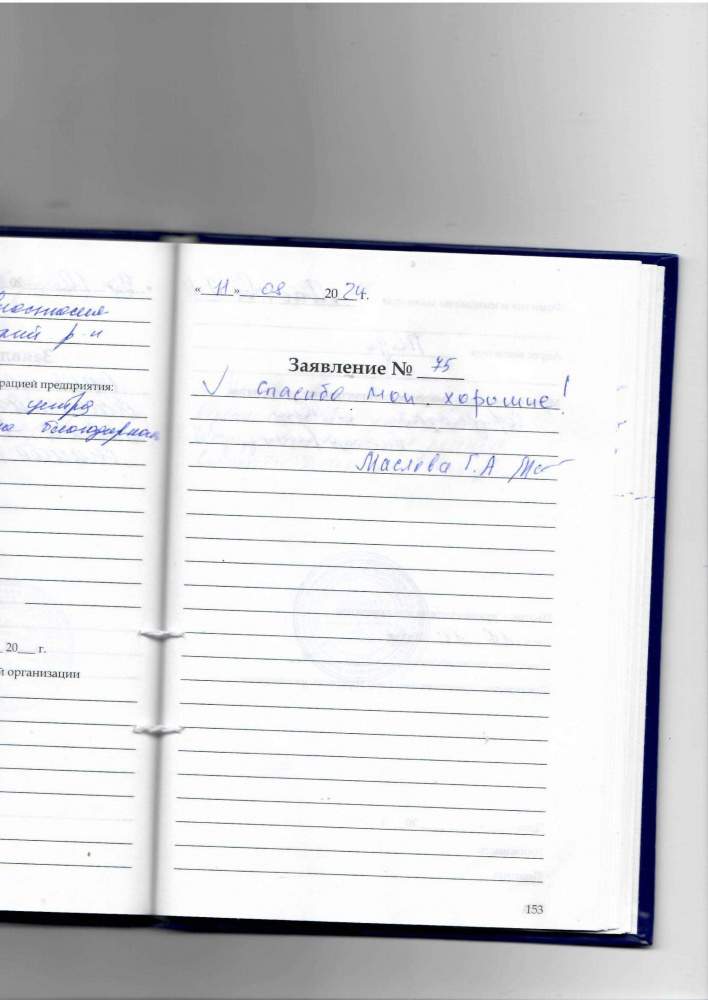 кий р-н
рацией предприятия:
центра
на благодарная
20 г.
й организации
« 11 » 08 2024г.
Заявление № 75
Спасибо мои хорошие!
Маслова Г.А
153